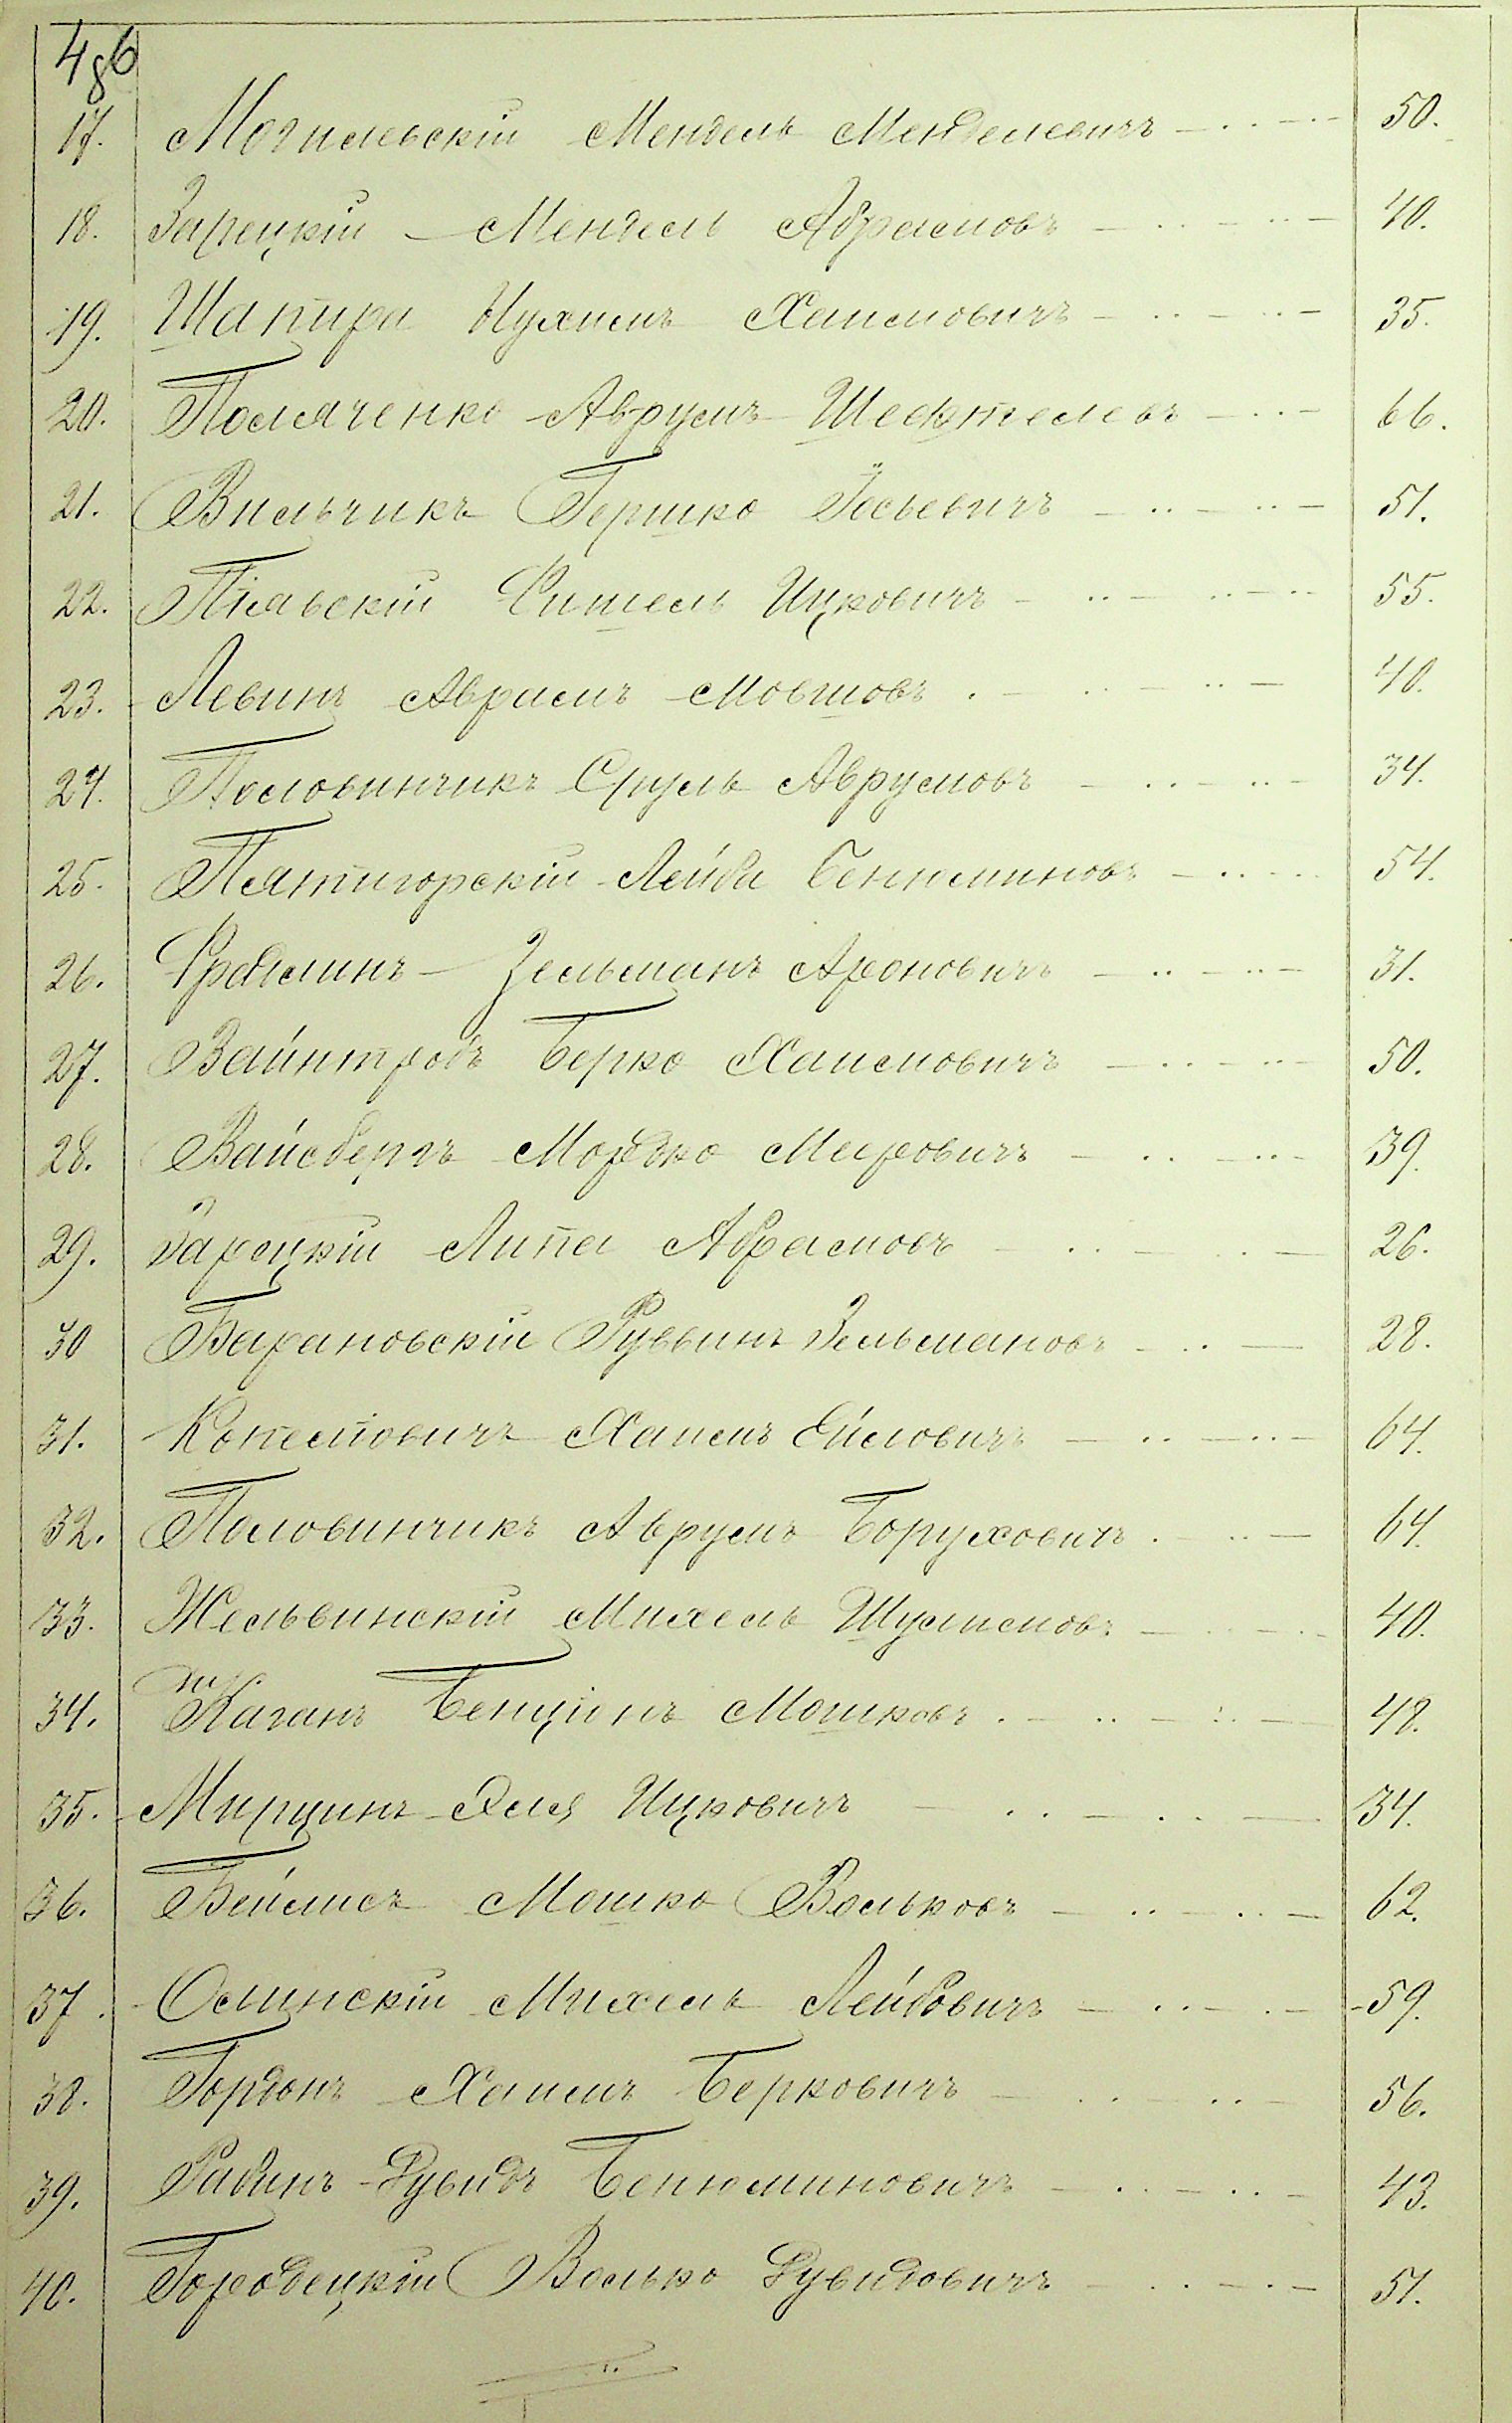 486
17. Могилевскій Мендель Менделевичъ 50.
18. Зарецкій Мендель Абрамовъ 40.
19. Шапира Нухимъ Хаимовичъ 35.
20. Поляченко Аврумъ Шефтелевъ 66.
21. Вильчикъ Гершко Іосьевичъ 51.
22. Фишель Ицковичъ 55.
23. Левинъ Аврамъ Мовшовъ 40.
24. Половинчикъ Сруль Аврумовъ 34.
25. Пятигорскій Лейба Бенюминовъ 54.
26. Фрадлинъ Зельманъ Ароновичъ 31.
27. Вайнтробъ Берко Хаимовичъ 50.
28. Вайсбергъ Мордко Меировичъ 39.
29. Зарецкій Липа Абрамовъ 26.
30 Барановскій Рувинъ Зельмановъ 28.
31. Хаимъ 64.
32. Половинчикъ Аврумъ Боруховичъ 64.
33. Жельвинскій Михель Шулимовъ 40.
34. Каганъ Бенціонъ Мошковъ 48.
35. Мирщинъ Эля Ицковичъ 34.
36. Бейлисъ Мошко Вольковъ 62.
37. Олинскій Михель Лейбовичъ 59.
38. Гордонъ Хаимъ Берковичъ 56.
39. Рабинъ Дувидъ Бенюминовичъ 43.
40. Городецкій Волько Дувидовичъ 51.